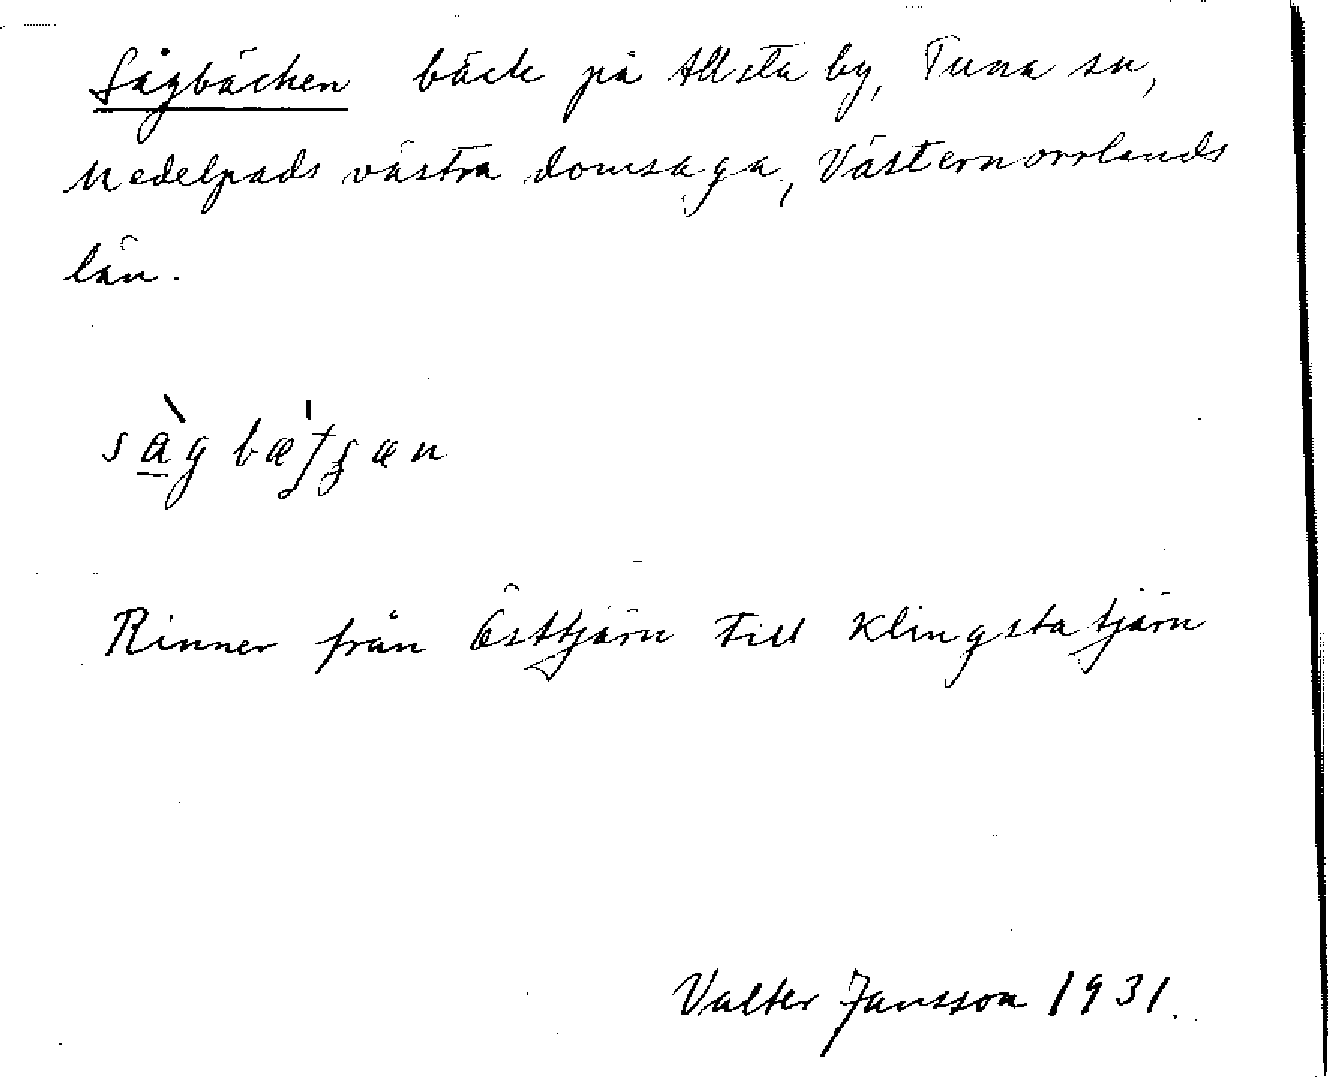 Sågbäcken bäck på Allsta by, Tuna sn,
Medelpads västra domsaga, Västernorrlands
län.
Rinner från Östtjärn till Klingstatjärn
Valter Jansson 1931.